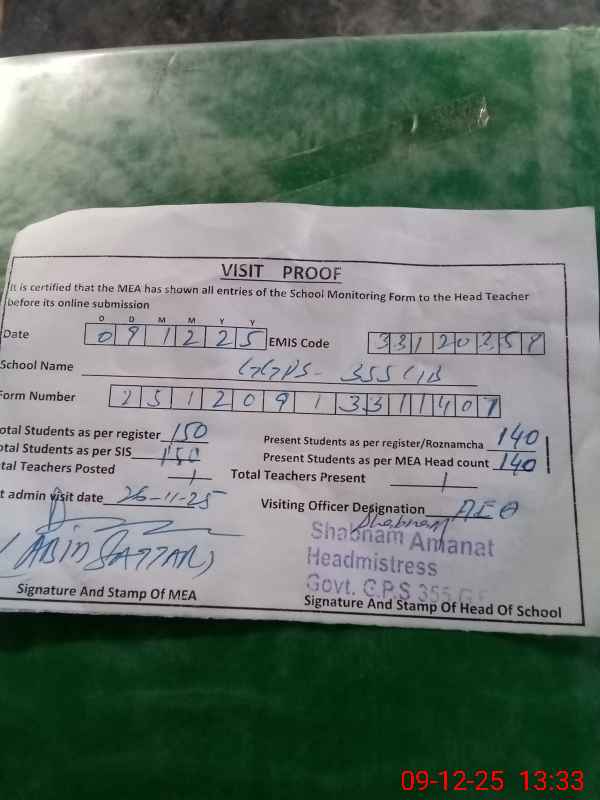 VISIT PROOF
It is certified that the MEA has shown all entries of the School Monitoring Form to the Head Teacher
before its online submission
D D M M Y Y
Date 0 9 1 2 2 5 EMIS Code 3 3 1 2 0 2 5 8
School Name GGPS- 355 GB
Form Number 2 5 1 2 0 9 1 3 3 1 1 4 0 7
otal Students as per register 150 Present Students as per register/Roznamcha 140
otal Students as per SIS 150 Present Students as per MEA Head count 140
tal Teachers Posted 1 Total Teachers Present 1
t admin visit date 26-11-25 Visiting Officer Designation AEO
Shabnam
(ABID SATTAR) Shabnam Amanat
Headmistress
Govt. G.P.S 355 G
Signature And Stamp Of MEA Signature And Stamp Of Head Of School
09-12-25 13:33